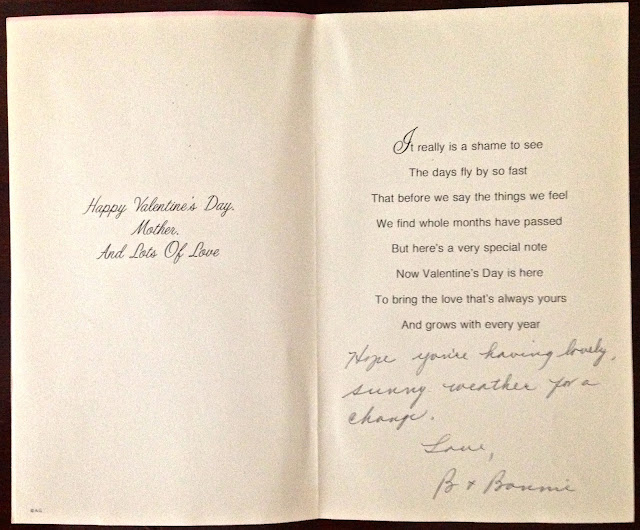 Happy Valentine's Day,
Mother,
And Lots Of Love
It really is a shame to see
The days fly by so fast
That before we say the things we feel
We find whole months have passed
But here's a very special note
Now Valentine's Day is here
To bring the love that's always yours
And grows with every year
Hope you're having lovely,
sunny weather for a
change.
Love,
B + Bonnie